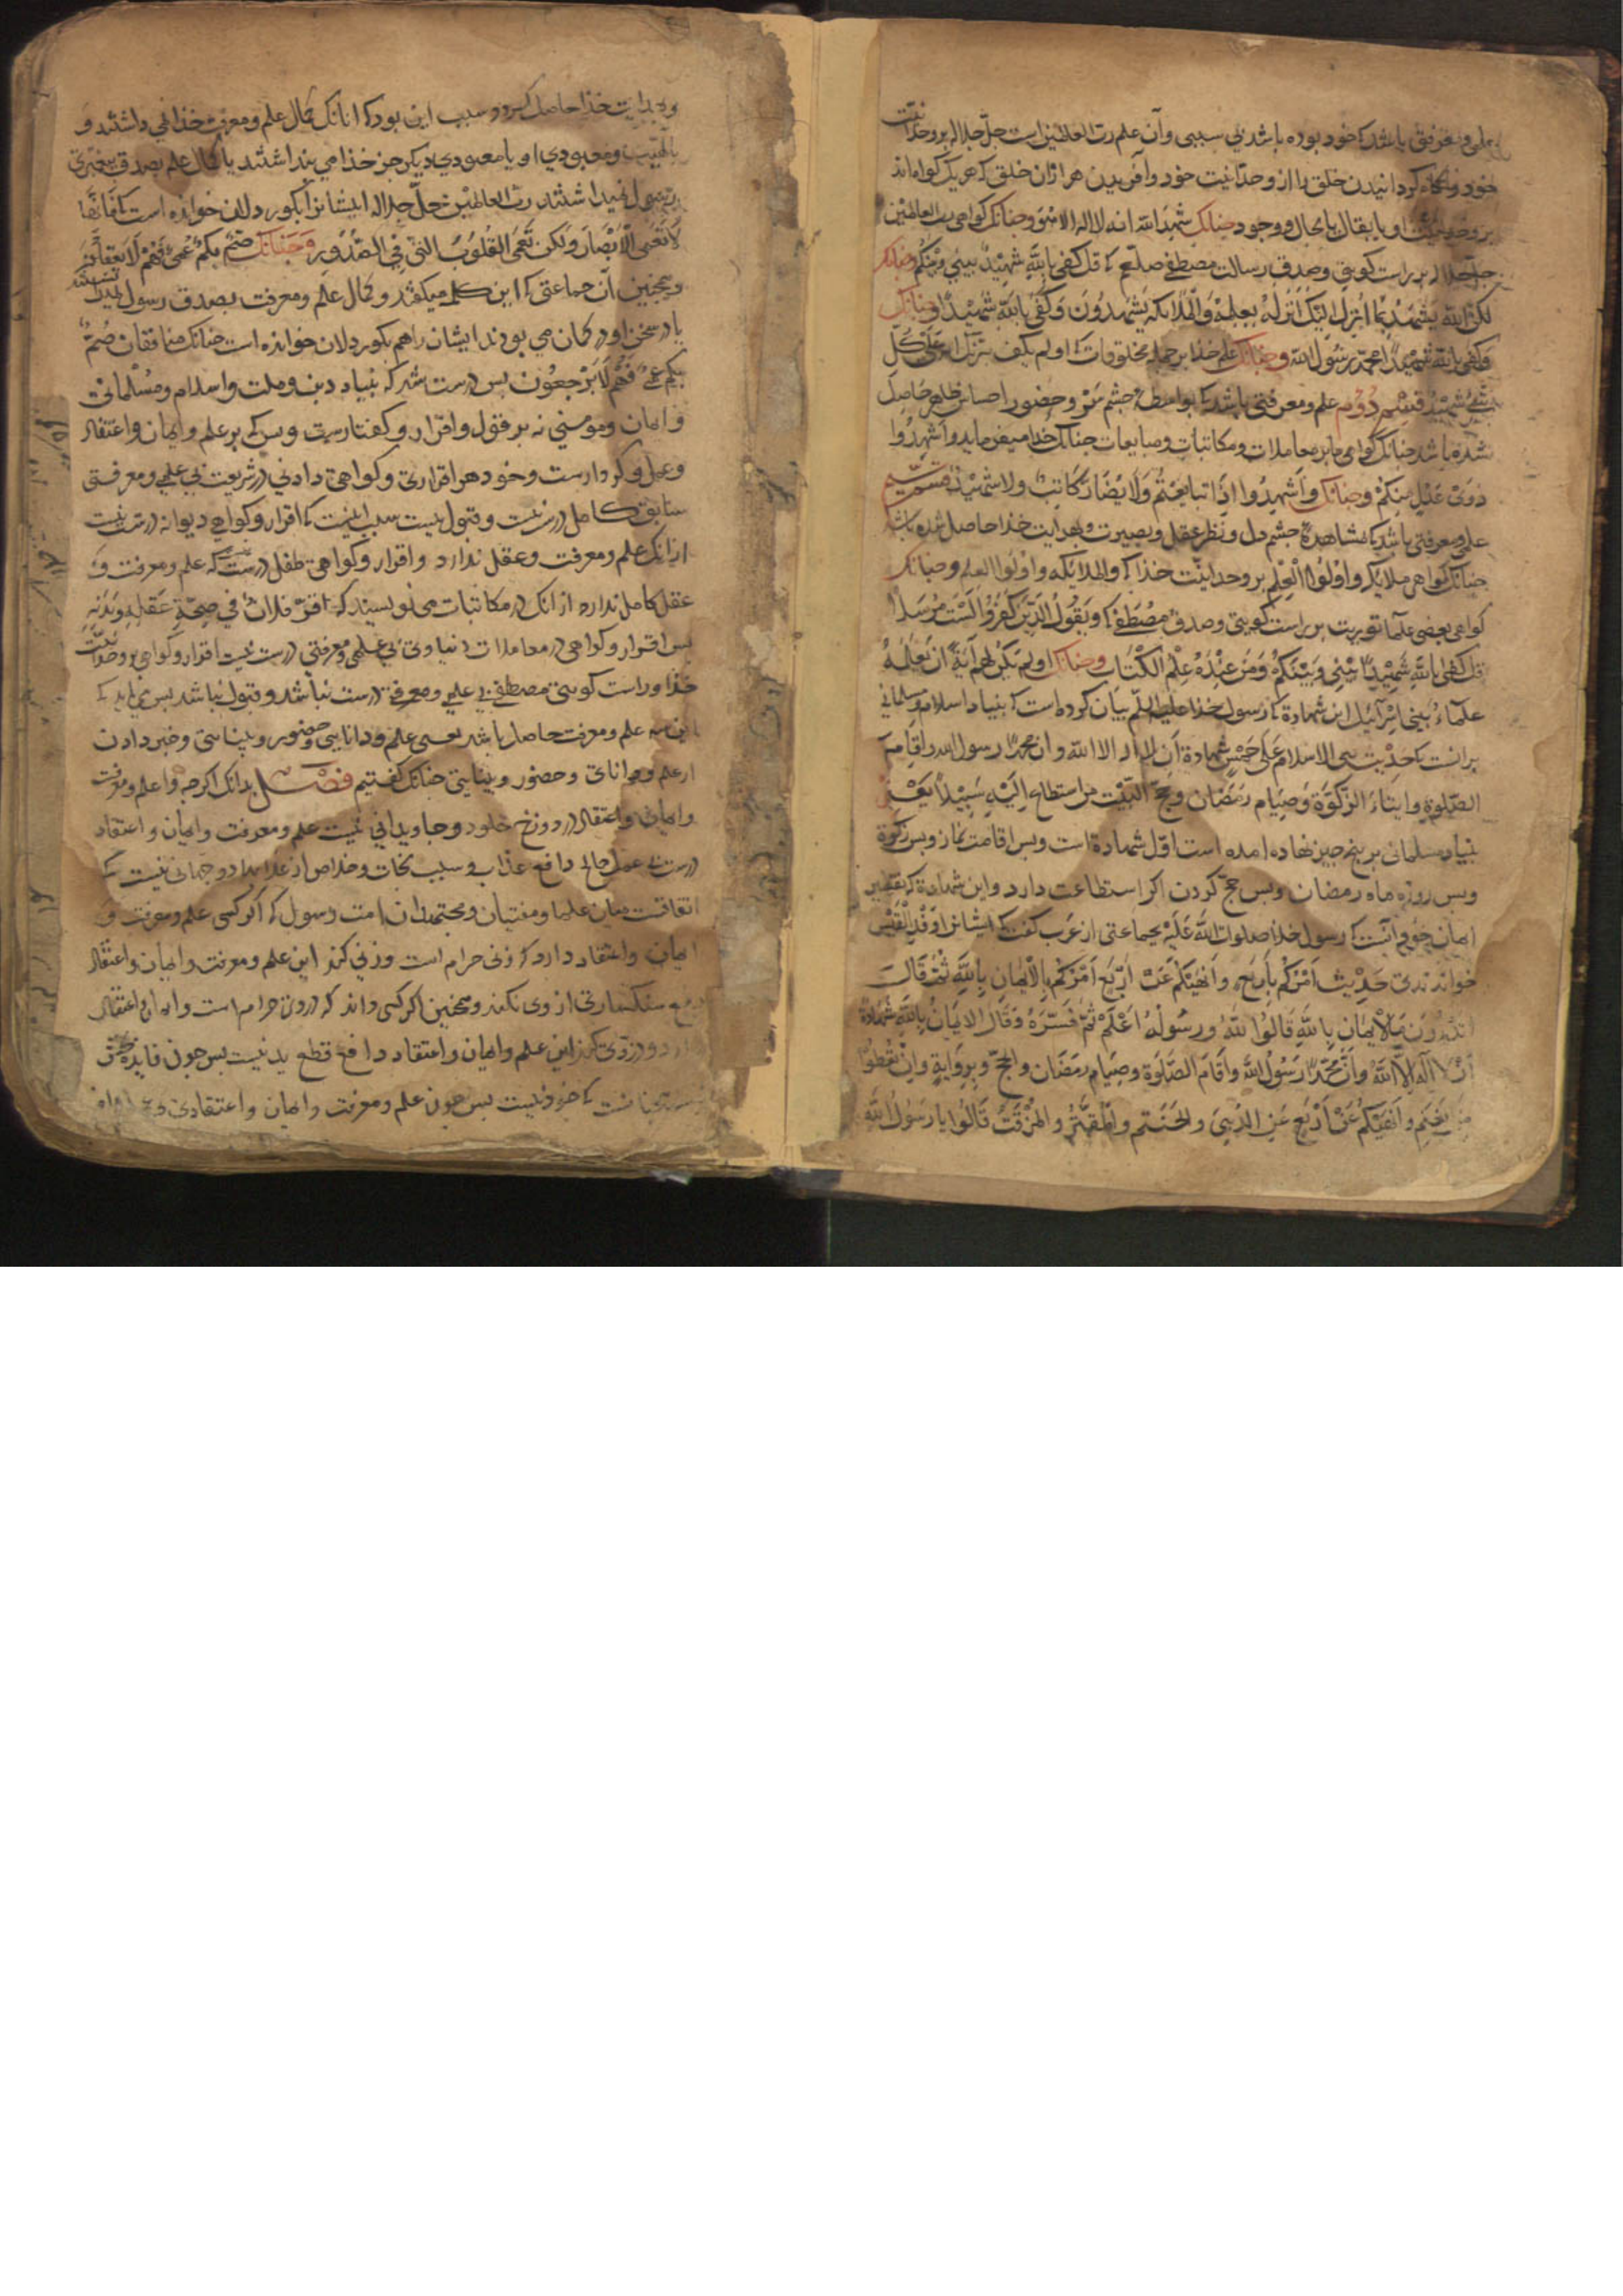 علمی و معرفتی باشد که خود بوده باشد بی سببی و آن علم رب العالمین است جل جلاله بر وحدانیت
خود و آگاه گردانیدن خلق را از وحدانیت خود و آفریدن هر از آن خلق که هر یک گواه اند
بر وحدانیت او یا بقال یا بحال و وجود چنانک شهد الله انه لا اله الا هو و چنانک گواهی رب العالمین
جل جلاله بر راست گویی و صدق رسالت مصطفی صلعم که قل کفی بالله شهیدا بینی و بینکم چنانک
لکن الله یشهد بما انزل الیک انزله بعلمه والملائکه یشهدون وکفی بالله شهیدا و چنانک
وکفی بالله شهیدا محمد رسول الله و چنانک علم خدا بر جمله مخلوقات که اولم یکف بربک انه علی کل
شئ شهید قسم دوم علم و معرفتی باشد که بواسطه چشم سر و حضور احساس ظاهر حاصل
شده باشد چنانک گواهی ما بر معاملات و مکاتبات و مبایعات چنانک خدا میفرماید واشهدوا
ذوی عدل منکم و چنانک واشهدوا اذا تبایعتم ولا یضار کاتب ولا شهید قسم سیم
علم و معرفتی باشد که مشاهده چشم دل و نظر عقل و بصیرت و هدایت خذا حاصل شده باشد
چنانک گواهی ملایکه و اولوا العلم بر وحدانیت خذا که والملائکه واولوا العلم و چنانک
گواهی بعضی علما توریت بر راست گویی و صدق مصطفی که ویقول الذین کفروا لست مرسلا
قل کفی بالله شهیدا بینی وبینکم ومن عنده علم الکتاب و چنانک اولم یکن لهم آیة ان یعلمه
علماء بنی اسرائیل این شهادة که رسول خدا علیه السلم بیان کرده است که بنیاد اسلام و مسلمانی
بر آنست که حدیث بنی الاسلام علی خمس شهادة ان لا اله الا الله وان محمدا رسول الله واقام
الصلوة وایتاء الزکوة وصیام رمضان وحج البیت من استطاع الیه سبیلا یعنی
بنیاد مسلمانی بر پنج چیز نهاده آمده است اول شهادة است و بس اقامت نماز و بس زکوة
و بس روزه ماه رمضان و بس حج کردن اکر استطاعت دارد و این شهادة که بتفسیر
ایمان آنست که رسول خدا صلوات الله علیه بجماعتی از عرب گفت که ایشانرا وفد القیس
خواندندی حدیث آمرکم باربع وانهیکم عن اربع آمرکم بالایمان بالله ثم قال
اتدرون ما الایمان بالله قالوا الله ورسوله اعلم ثم فسره وقال الایمان بالله شهادة
ان لا اله الا الله وان محمدا رسول الله واقام الصلوة وصیام رمضان والحج وبروایة وان تعطوا
من یغنم وانهیکم عن اربع عن الدبی والحنتم والمقیر والمزفت قالوا یا رسول الله
و هدایت خذا حاصل کرد و سبب این بود که انانک کمال علم و معرفت خدائی داشتند و
ومعبودی او یا معبودی دیکر جز خذا می بنداشتند یا کمال علم بصدق بیغمبری
رسول نمیداشتند رب العالمین جل جلاله ایشانرا بکور دلان خوانده است که فانها
لا تعمی الابصار ولکن تعمی القلوب التی فی الصدور و چنانک صم بکم عمی فهم لا یعقلون
و همچنین آن جماعتی که این کلمه میکفتند و کمال علم و معرفت بصدق رسول نمیداشتند
یا در سخن او در کمان می بودند ایشان را هم بکور دلان خوانده است چنانک منافقان صم
بکم عمی فهم لا یرجعون بس درست شد که بنیاد دین و ملت و اسلام و مسلمانی
و ایمان و مومنی نه بر قول و اقرار و کفتارست و بس که بر علم و ایمان و اعتقاد
و عمل و کردارست و خود هر اقراری و گواهی دادنی در شریعت بی علمی و معرفتی
سابق کامل درست نیست و قبول نیست سبب اینست که اقرار و گواهی دیوانه درست نیست
از آنک علم و معرفت و عقل ندارد و اقرار و گواهی طفل درست که علم و معرفت و
عقل کامل ندارد از آنک در مکاتبات می نویسند که اقر فلان فی صحة عقله وبدنه
بس اقرار و گواهی در معاملات دنیاوی بی علمی و معرفتی درست نیست اقرار و گواهی بر وحدانیت
خذا و راست گویی مصطفی بی علمی و معرفتی درست نباشد و قبول نباشد بس می باید که
این سه علم و معرفت حاصل باشد یعنی علم و دانایی و حضور و بینائی و خبر دادن
از علم و دانائی و حضور و بینایی چنانک گفتیم فصل بدانک اکر چه با علم و معرفت
و ایمان و اعتقاد در دوزخ خلود و جاویدانی نیست علم و معرفت و ایمان و اعتقاد
درست بی عمل صالح دافع عذاب و سبب نجات و خلاص از عذاب دو جهانی نیست که
اتفاقست میان علما و مفتیان و مجتهدان امت رسول که اکر کسی علم و معرفت و
ایمان و اعتقاد دارد که زنی حرام است و زنی کند این علم و معرفت و ایمان و اعتقاد
دفع سنکساری از وی نکند و همچنین اکر کسی داند که دزدی حرام است و ایمان و اعتقاد
دارد و دزدی کند این علم و ایمان و اعتقاد دافع قطع ید نیست بس چون فایده
نیست بس چون علم و معرفت و ایمان و اعتقادی